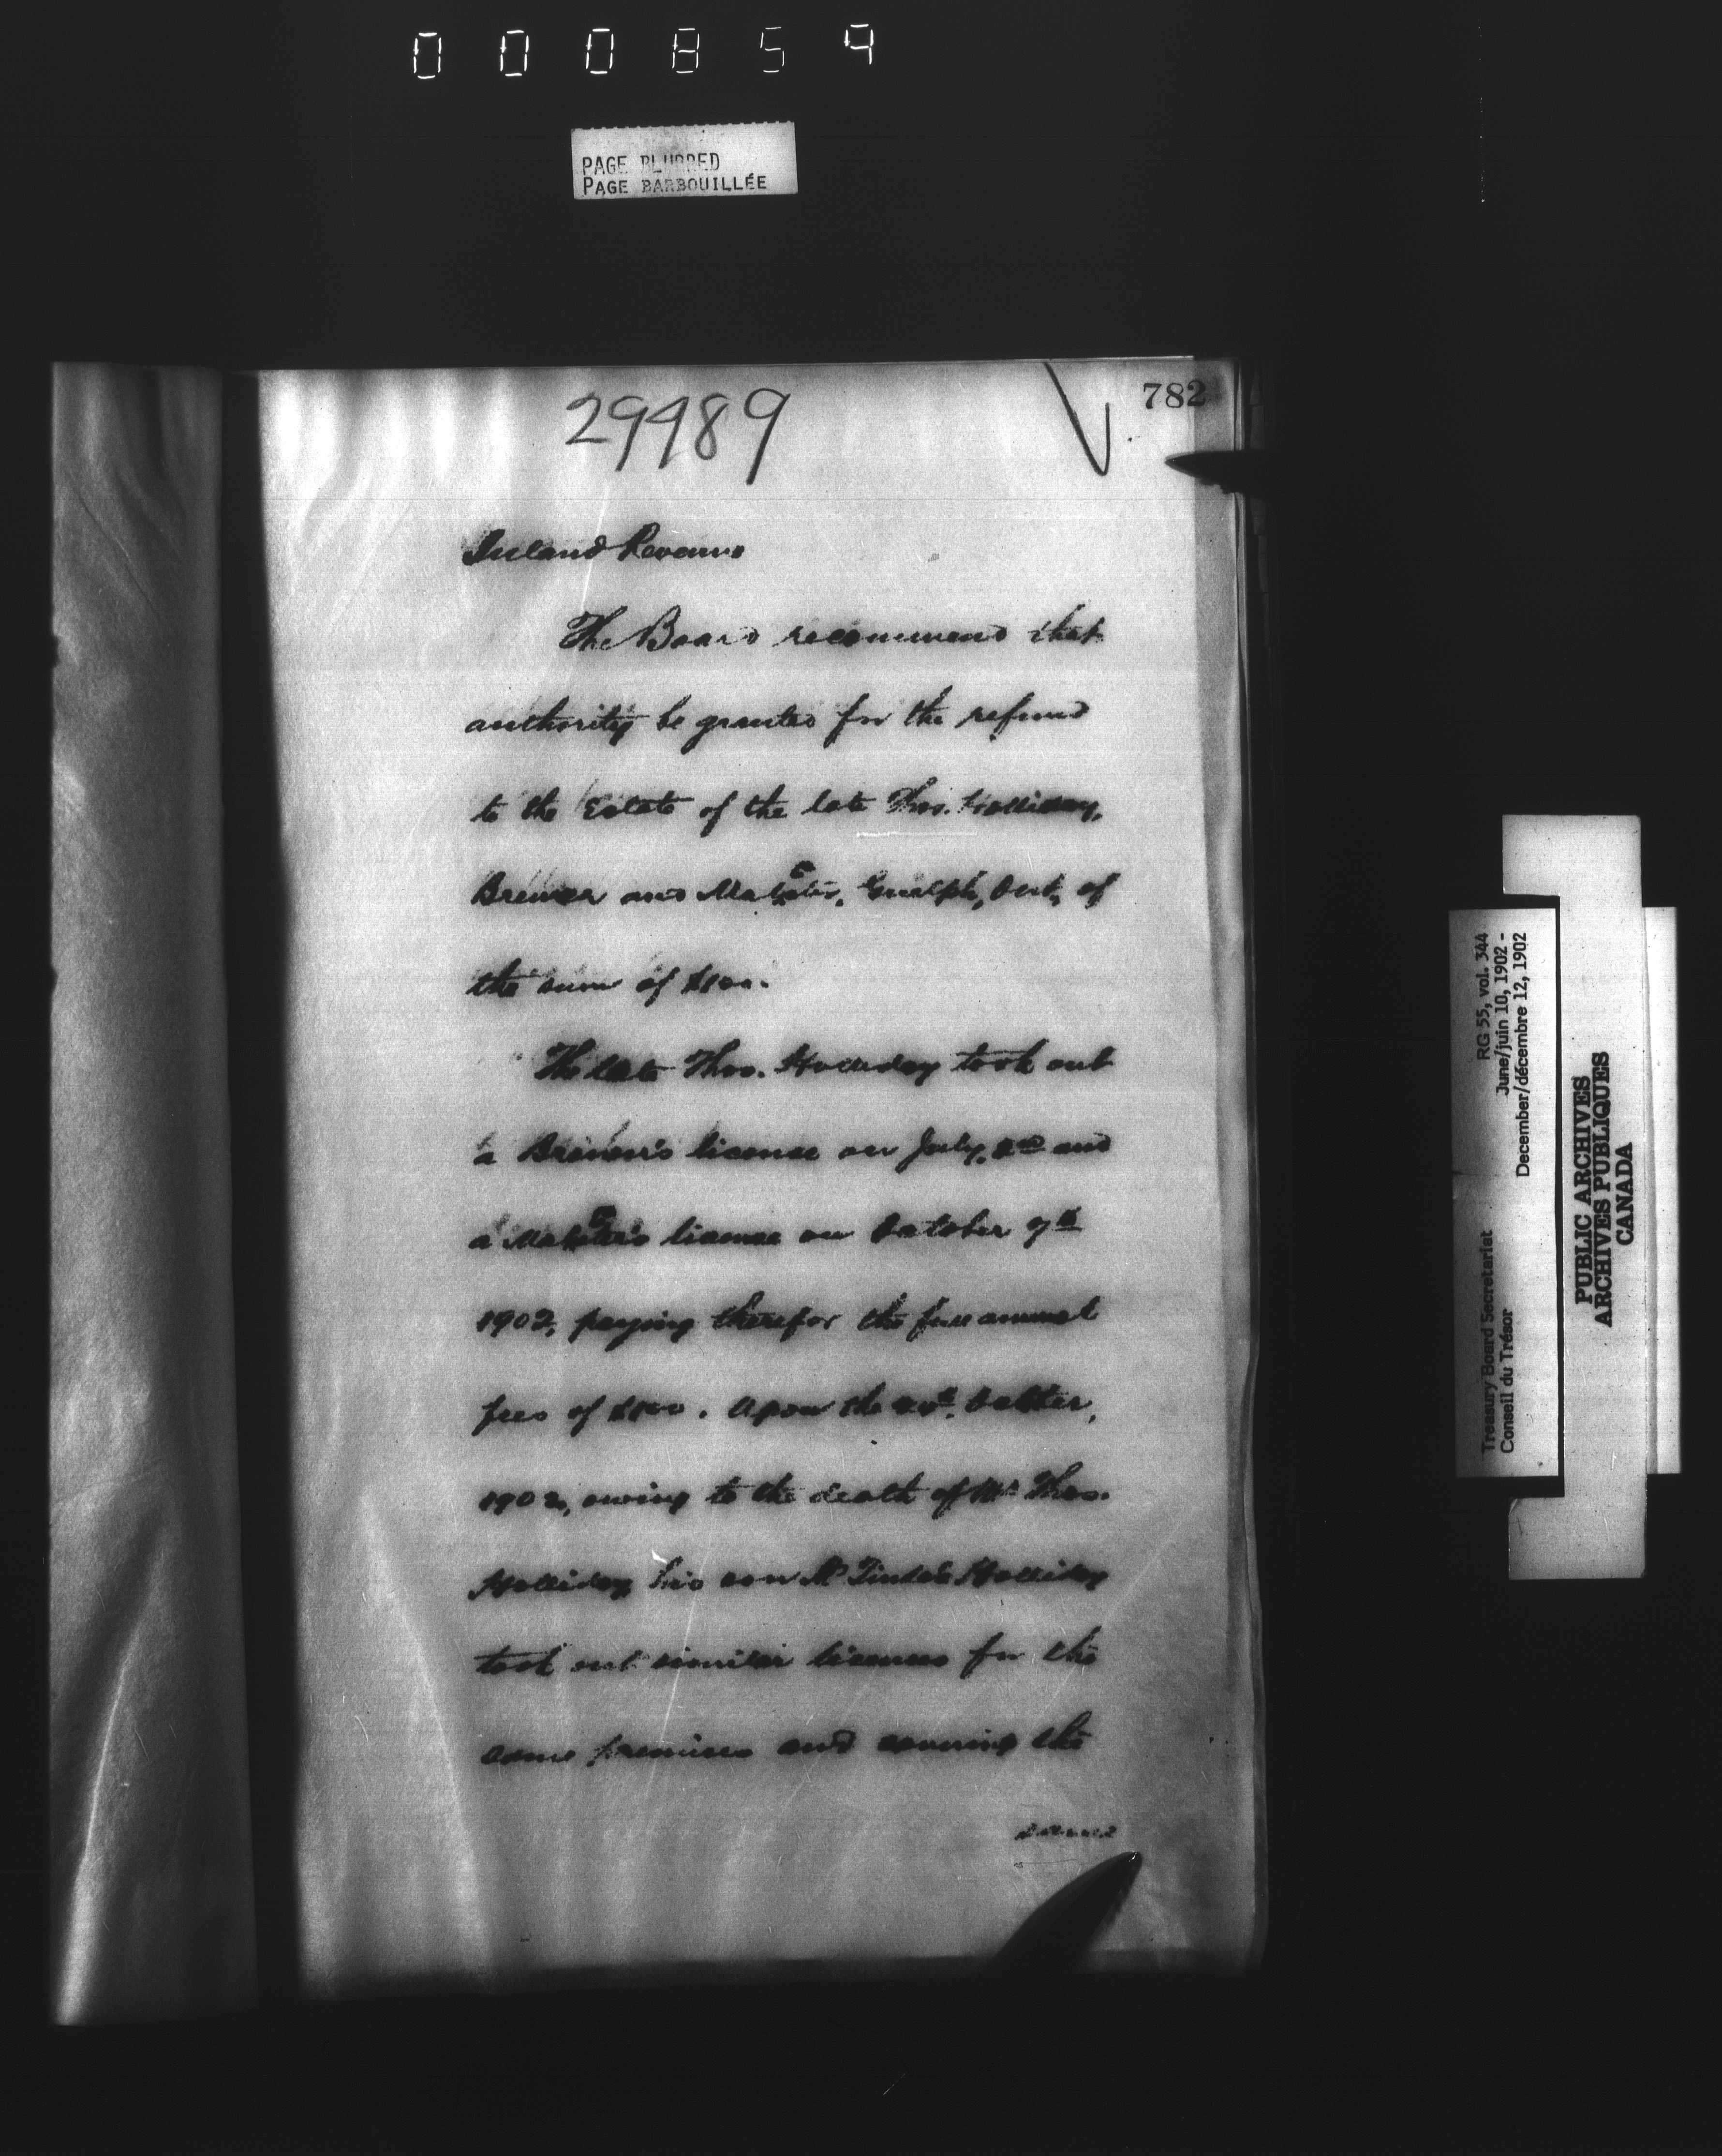 000859
PAGE BLURRED
PAGE BARBOUILLÉE
782
29489
Inland Revenue
The Board recommend that
authority be granted for the refund
to the Estate of the late Thos. Holliday,
Brewer and Maltster, Guelph, Ont, of
the sum of $100.
The late Thos. Holliday took out
a Brewer's license on July, 2nd and
a Maltster's license on October 7th
1902, paying therefor the full annual
fees of
Upon the
October,
1902, owing to the death of Mr Thos.
Holliday, his son Mr
Holliday
took out similar licenses for the
same premises and covering the
same
Treasury Board Secretariat RG 55, vol. 344
Conseil du Trésor June/juin 10, 1902 -
December/décembre 12, 1902
PUBLIC ARCHIVES
ARCHIVES PUBLIQUES
CANADA